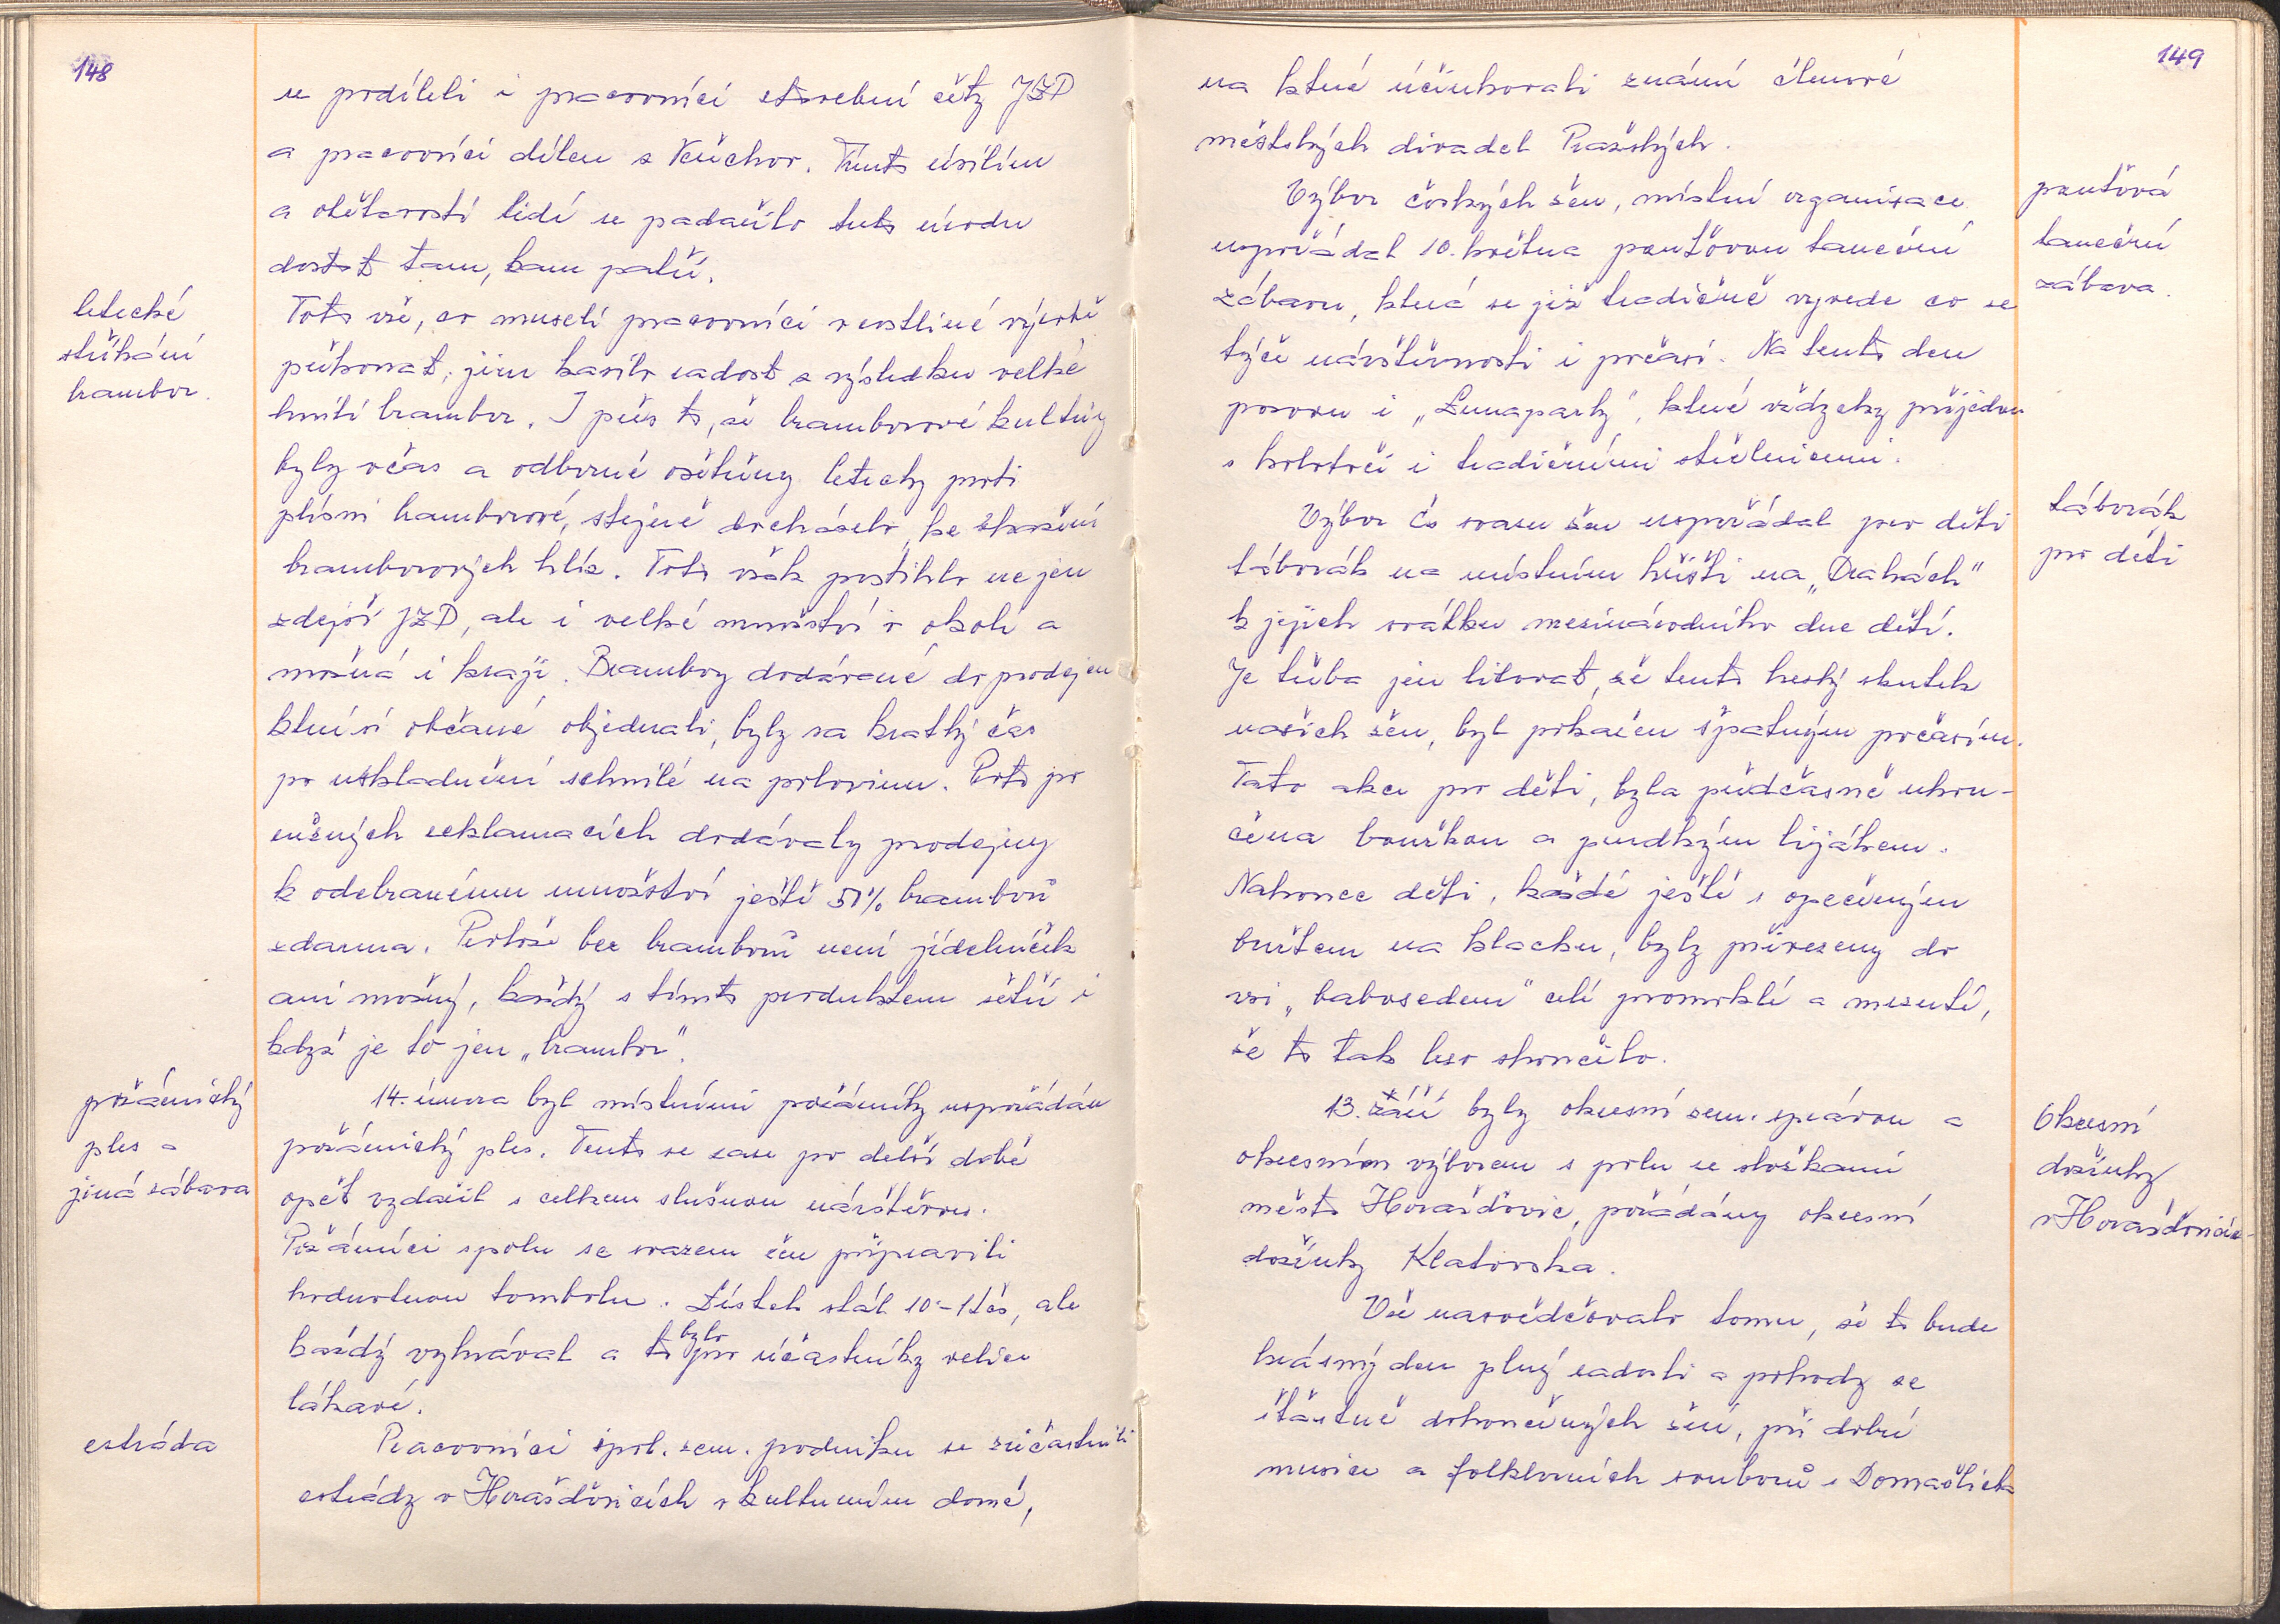 148
se podíleli i pracovníci stavební čety JZD
a pracovníci dílen z Kuchor. Tímto úsilím
a obětavostí lidí se podařilo tuto úrodu
dostat tam, kam patří.
letecké
stříkání
brambor.
Toto vše, co museli pracovníci v rostlinné výrobě
překonat, jim kazilo radost z výsledku velké
hnití brambor. I přes to, že bramborové kultury
byly včas a odborně ošetřeny letecky proti
plísni bramborové, stejně docházelo ke zkažení
bramborových hlíz. Toto však postihlo nejen
zdejší JZD, ale i velké množství v okolí a
možná i kraji. Brambory dodávané do prodejen
kteří si občané objednali, byly za krátký čas
po uskladnění schnilé na polovinu. Proto po
různých reklamacích dodávaly prodejny
k odebranému množství ještě 50% bramborů
zdarma. Protože bez bramborů není jídelníček
ani možný, každý s tímto produktem šetří i
když je to jen „brambor".
požárnický
ples a
jiná zábava
14. února byl místními požárníky uspořádán
požárnický ples. Tento se zase po delší době
opět vydařil s celkem slušnou návštěvou.
Požárníci spolu se svazem žen připravili
hodnotnou tombolu. Lístek stál 10.- Kčs, ale
každý vyhrával a to bylo pro účastníky velice
lákavé.
estráda
Pracovníci spol. zem. podniku se zúčastnili
estrády v Horažďovicích v kulturním domě,
149
na které účinkovali známí členové
městských divadel Pražských.
pouťová
taneční
zábava.
Výbor českých žen, místní organizace
uspořádal 10. května pouťovou taneční
zábavu, která se již tradičně vyvede co se
týče návštěvnosti i počasí. Na tento den
pozvou i „Lunaparky", které vždycky přijedou
s kolotoči i tradičními střelnicemi.
táborák
pro děti
Výbor čs svazu žen uspořádal pro děti
táborák na místním hřišti na „Drahách"
k jejich svátku mezinárodního dne dětí.
Je třeba jen litovat, že tento hezký skutek
našich žen, byl pokažen špatným počasím.
Tato akce pro děti, byla předčasně ukon-
čena bouřkou a prudkým lijákem.
Nakonec děti, každé ještě s opečeným
buřtem na klacku, byly přivezeny do
vsi „babosedem" celí promoklí a mrzutí,
že to tak brzo skončilo.
Okresní
dožínky
v Horažďovicích
13. září byly okresní zem. správou a
okresním výborem s polu se složkami
města Horažďovic, pořádány okresní
dožínky Klatovska.
Vše nasvědčovalo tomu, že to bude
krásný den plný radosti a pohody ze
šťastně dokončených žní, při dobré
muzice a folklorních souborů z Domažlicka